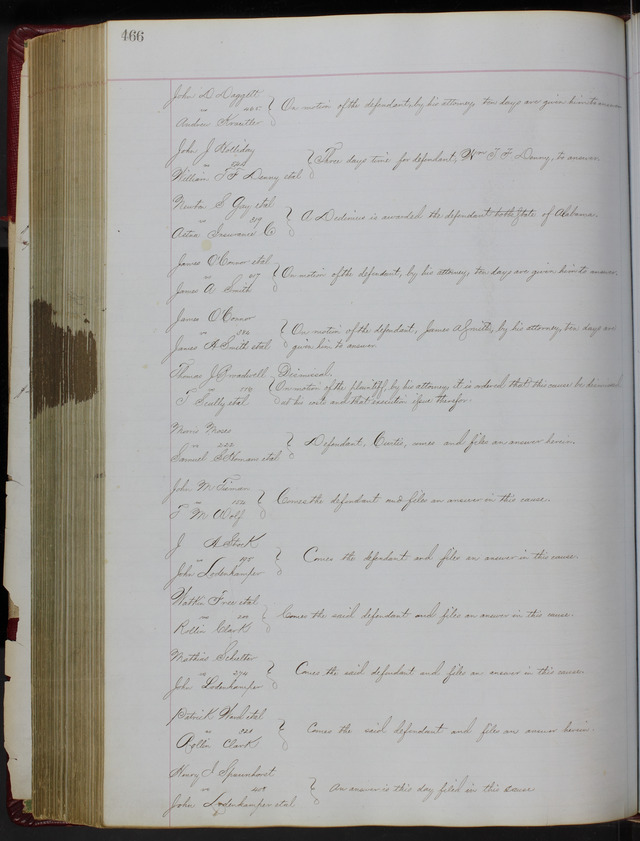 466
John D Daggett
vs 405 } On motion of the defendant, by his attorney, ten days are given him to answer
Andrew
John J Holliday
vs } Three days time for defendant, Wm T. F. Denny, to answer
William T F Denny etal
Newton S Gay etal
vs 319 } A Dedimus is awarded the defendant to the State of Alabama.
Aetna Insurance Co
James O'Connor etal
vs } On motion of the defendant, by his attorney, ten days are given him to answer.
James A Smith
James O'Connor
vs 386 } On motion of the defendant, James A Smith, by his attorney, ten days are
James A Smith etal } given him to answer
Thomas J Broadwell Dismissal.
vs } On motion of the plaintiff, by his attorney, it is ordered that this cause be dismissed
T Scully etal } at his costs and that execution issue therefor.
Morris Moses
vs 222 } Defendant, comes and files an answer herein.
Samuel etal
John M
vs } Comes the defendant and files an answer in this cause.
T M
J H Stock
vs } Comes the defendant and files an answer in this cause.
John Lodenkamper
Watkin Free etal
vs } Comes the said defendant and files an answer in this cause.
Rollin Clark
Mathias
vs 374 } Comes the said defendant and files an answer in this cause.
John Lodenkamper
Patrick Ward etal
vs } Comes the said defendant and files an answer herein.
Rollin Clark
Henry J Spaunhorst
vs } An answer is this day filed in this cause
John Lodenkamper etal